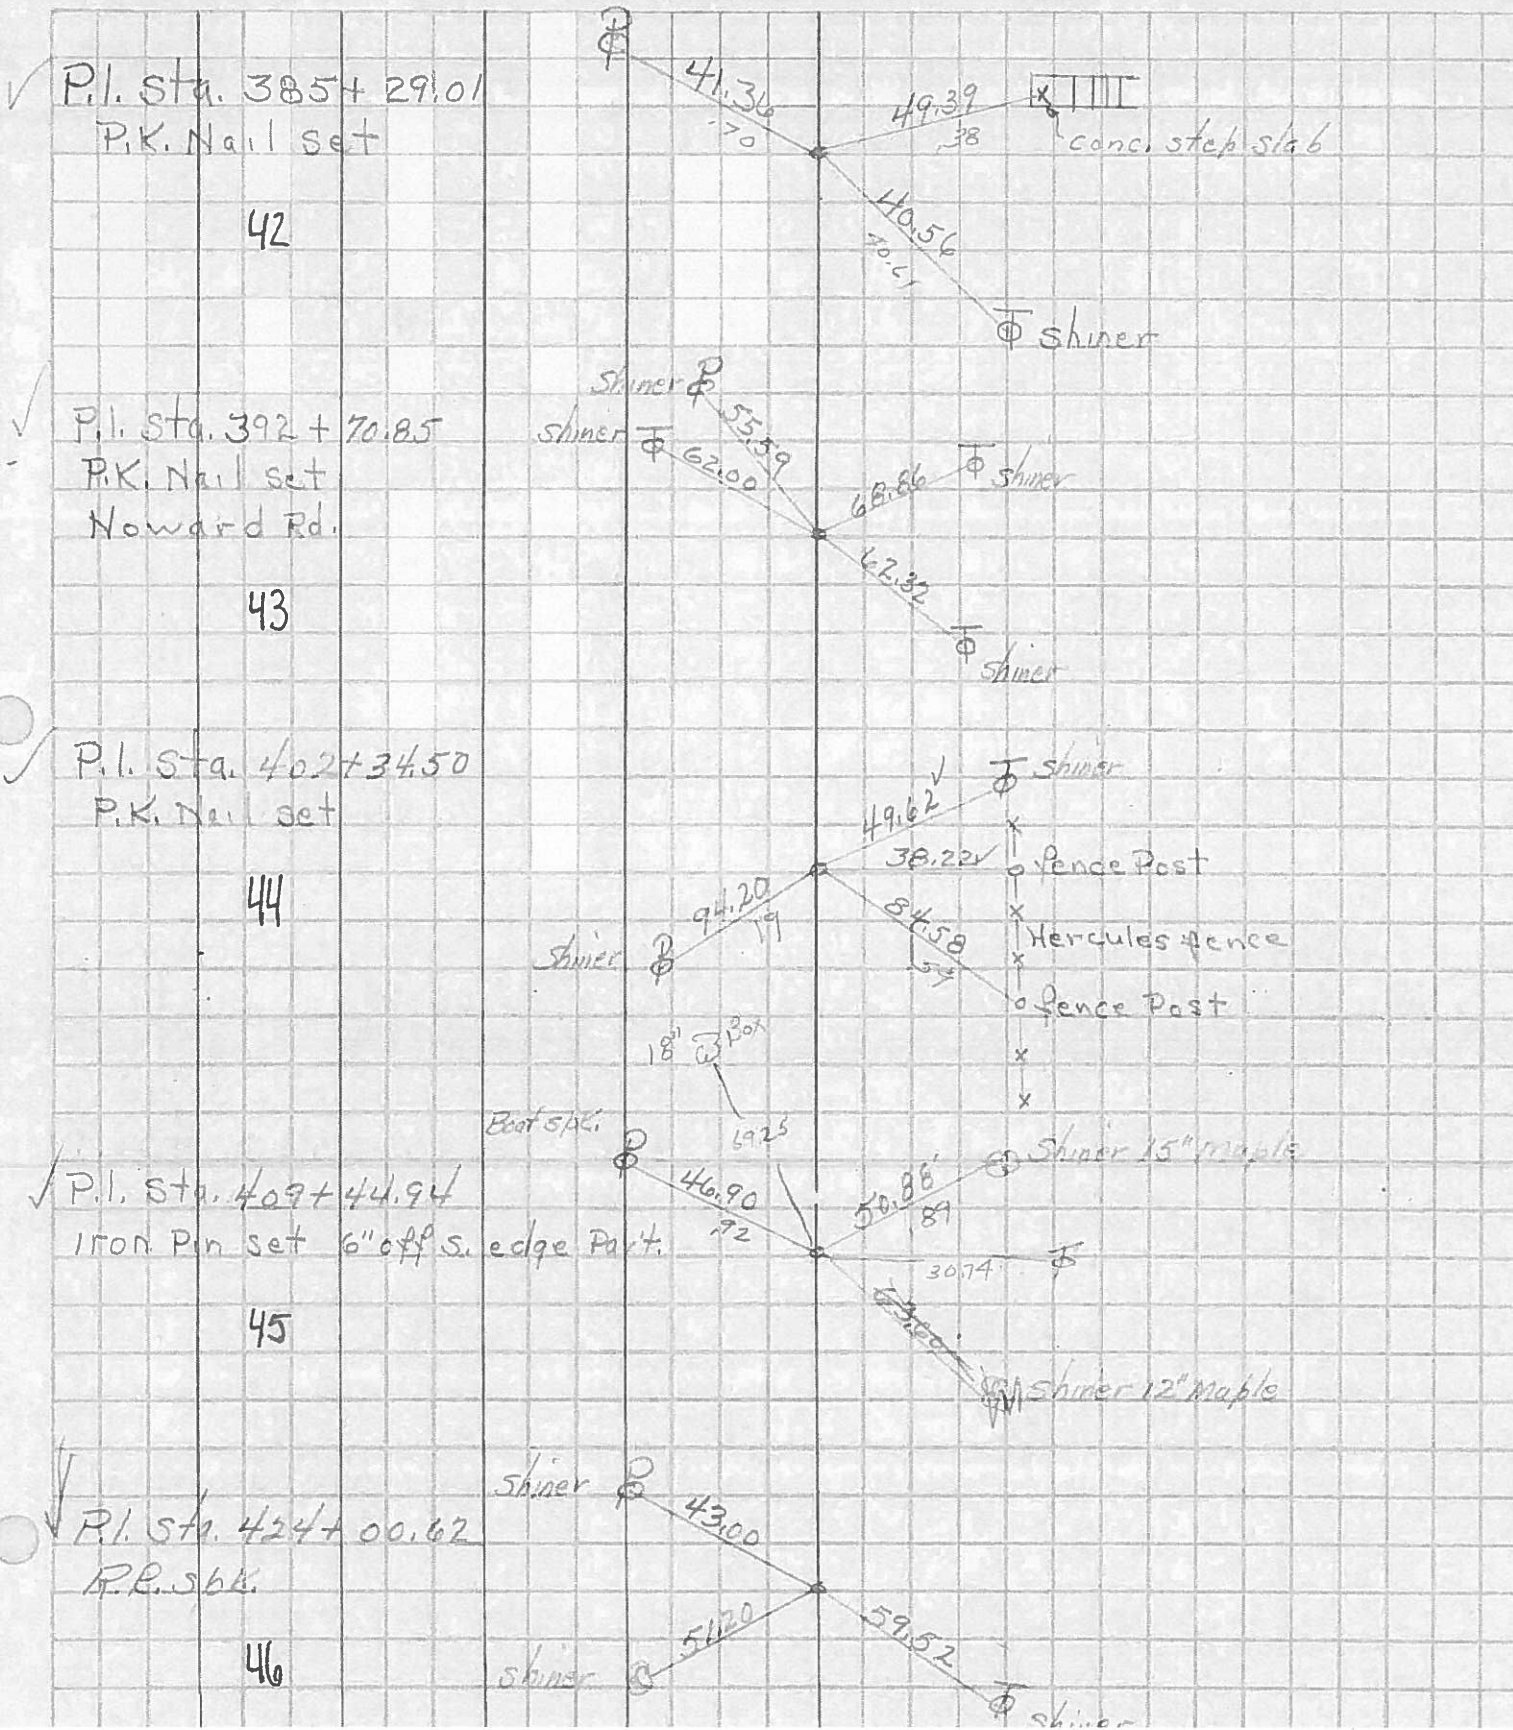 P.I. Sta. 385+29.01
P.K. Nail set
42
41.36
.70
49.39
.38
conc. step slab
40.56
40.61
shiner
P.I. Sta. 392+70.85
P.K. Nail set
Howard Rd.
43
shiner
shiner
55.59
62.00
68.86
shiner
62.32
shiner
P.I. Sta. 402+34.50
P.K. Nail set
44
49.62
shiner
38.22
fence Post
94.20
19
84.58
.54
Hercules fence
shiner
fence Post
18" Box
69.25
Boat spk.
P.I. Sta. 409+44.94
Iron Pin set 6" off S. edge
45
46.90
.92
50.88'
89
Shiner 15" Maple
30.74
63.60
Shiner 12" Maple
P.I. Sta. 424+00.62
R.R. spk.
46
shiner
43.00
51.20
shiner
59.52
shiner